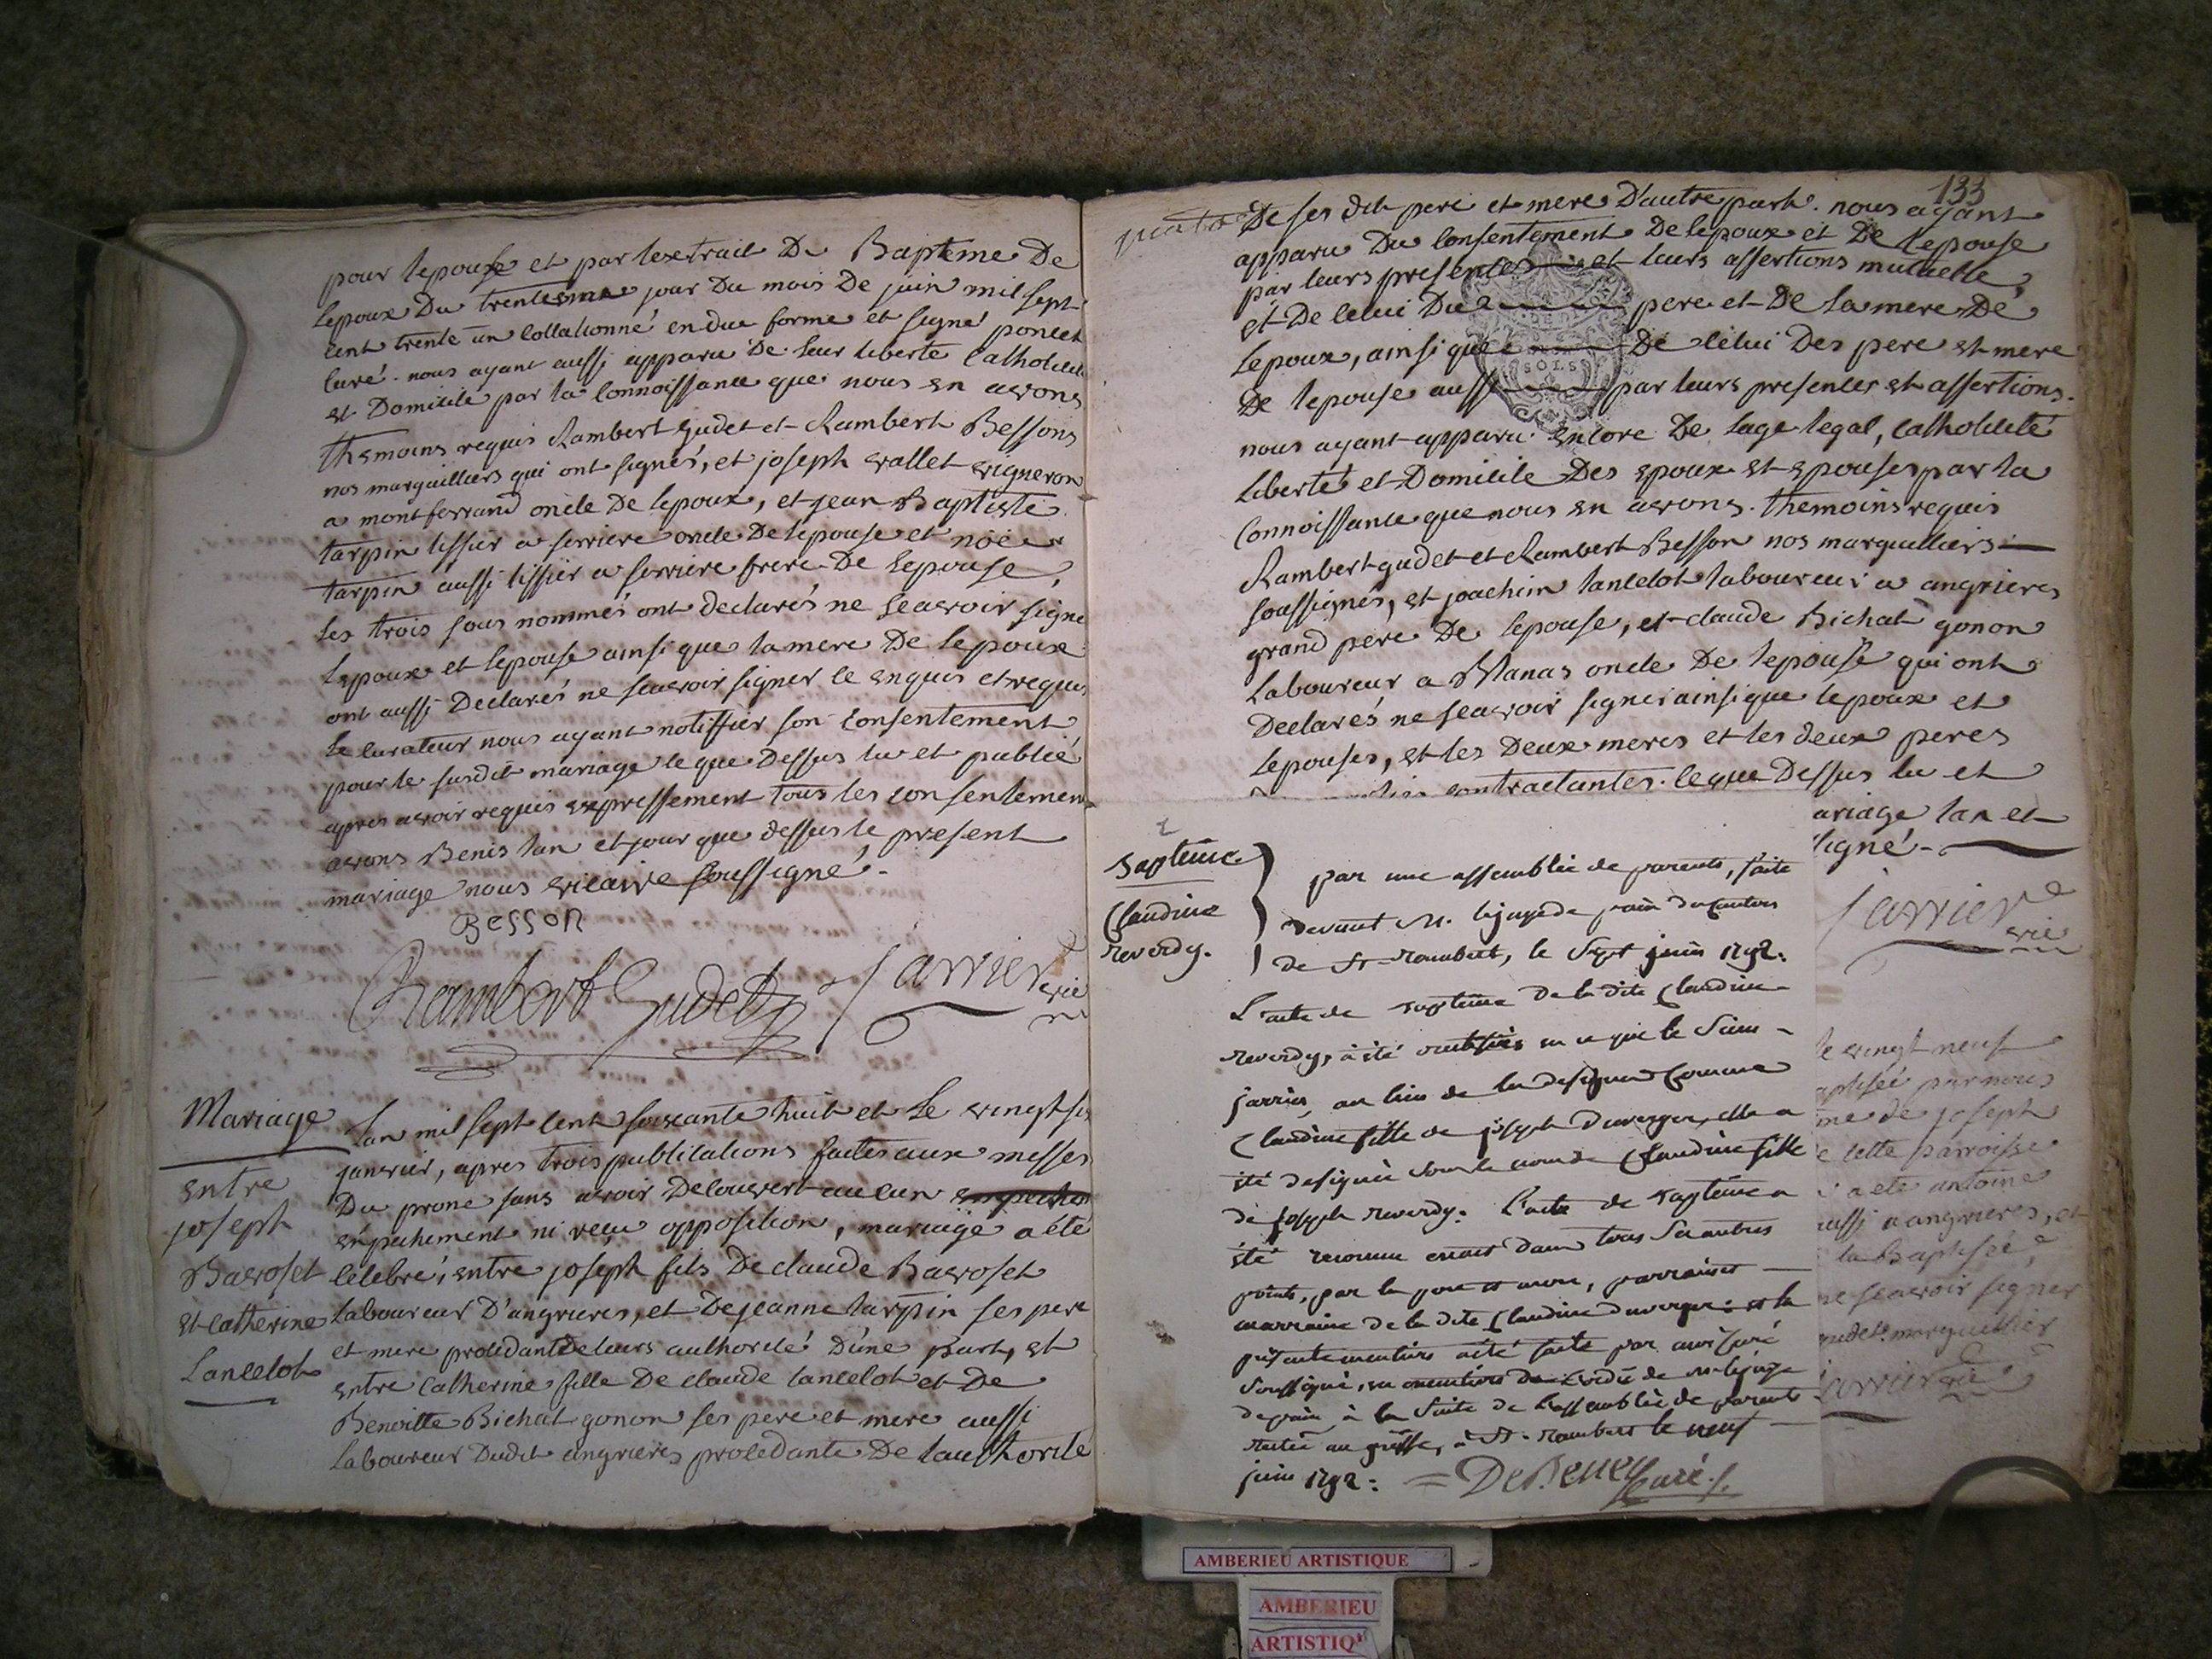 pour lepouse et par lextrait De Bapteme De
lepoux Du trentieme jour Du mois De juin mil sept
cent trente un collationné en due forme et signé poncet
curé. nous ayant aussi apparu De leur liberté Catholicité
et Domicile par la connoissance que nous en avons
themoins requis Rambert gudet et Rambert Bessons
nos marguilliers qui ont signés, et joseph vallet vigneron
a montferrand oncle De lepoux, et jean Baptiste
tarpin tissier a serriere oncle De lepouse et
tarpin aussi tissier a serriere frere De lepouse,
les trois sous nommés ont declarés ne sçavoir signe
lepoux et lepouse ainsi que la mere De lepoux
ont aussi Declarés ne sçavoir signer ce enquis et requis
le curateur nous ayant notiffier son consentement
pour le susdit mariage ce que Dessus lu et publié
apres avoir requis expressement tous les consentemen
avons Benis lan et jour que dessus le present
mariage nous vicaire soussigné.
Besson
Rambert Gudet Jarrier vic
Mariage
entre
joseph
Bavoset
et catherine
Lancelot
Lan mil sept cent soixante huit et Le vingt si
janvier, apres trois publications faites aux messes
Du prone sans avoir Decouvert aucun
enpechement ni reçu opposition, mariage a été
celebré, entre joseph fils De claude Bavoset
laboureur D'angrieres, et De jeanne tarpin ses pere
et mere procedant de leurs authorité D'une part, et
entre Catherine fille De claude lancelot et De
Benoitte Bichat gonon ses pere et mere aussi
laboureur Dudit angrieres procedante De lauthorité
133
De ses dit pere et mere D'autre part. nous ayant
apparu Du consentement De lepoux et De lepouse
par leurs presences et leurs assertions mutuelle,
et De celui Du pere et De la mere De
lepoux, ainsi que De celui Des pere et mere
De lepouse aussi par leurs presences et assertions.
SOLS
nous ayant apparu encore De lage legal, catholicité
liberté et Domicile Des epoux et epouses par la
Connoissance que nous en avons. themoins requis
Rambert gudet et Rambert Besson nos marguilliers
soussignés, et joachim lancelot laboureur a angrieres
grand pere De lepouse, et claude Bichat gonon
Laboureur a Manas oncle De lepouse qui ont
Declarés ne sçavoir signer ainsi que lepoux et
lepouses, et les Deux meres et les deux peres
contractantes. ce que Dessus lu et
ariage lan et
signé.
Jarrier vic
Baptême
Claudine
reverdy.
par une assemblée de parents, faite
devant M. le juge de paix du canton
de St-Rambert, le Sept juin 1792.
L'acte de baptême de la dite Claudine
reverdy, a été rectifiée en ce que le Sieur
jarrier, au lieu de la designer Comme
Claudine fille de joseph Duverger, elle a
été designée Sous le nom de Claudine fille
de joseph reverdy. L'acte de baptême a
été reconnu exact dans tous Ses autres
points, par les pere et mere, parrain et
marraine de la dite Claudine duverger: et la
presente mention a été faite par moi Curé
Soussigné, en de M. le juge
de paix à la Suite de l'assemblée de parents
restée au greffe, à St-Rambert le neuf
juin 1792:
le vingt neuf
aptisée par nous
me de joseph
e cette parroisse
a ete antoine
aussi a angrieres, et
la Baptisée
ne sçavoir signer
gudet marguillier
Jarrier vic
AMBERIEU ARTISTIQUE
AMBERIEU
ARTISTIQ